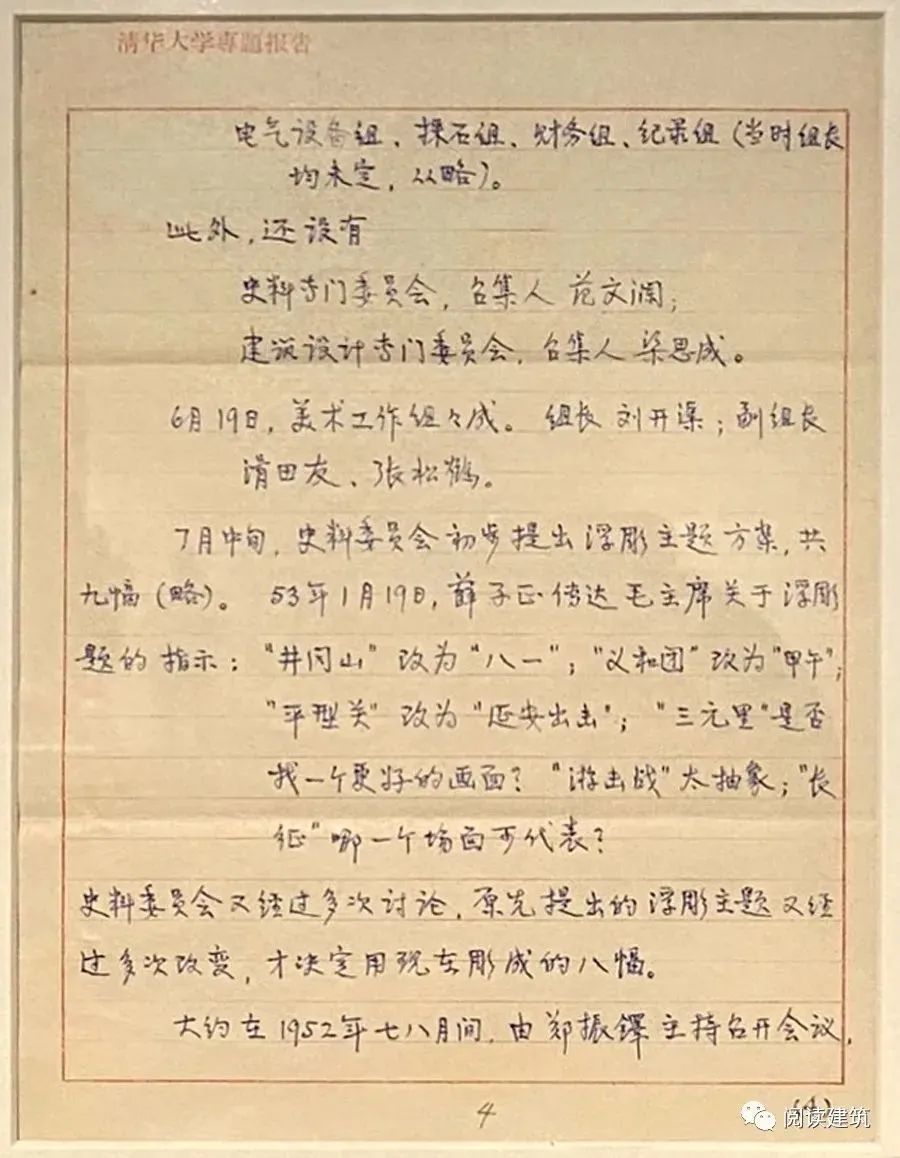 清华大学專題报告
电气设备组、採石组、财务组、纪录组(当时组长
均未定，从略)。
此外，还设有
史料专门委员会，召集人 范文澜；
建筑设计专门委员会，召集人 梁思成。
6月19日，美术工作组々成。组长 刘开渠；副组长
滑田友、张松鹤。
7月中旬，史料委员会初步提出浮彫主题方案，共
九幅(略)。53年1月19日，薛子正传达毛主席关于浮彫
题的指示："井冈山"改为"八一"；"义和团"改为"甲午"；
"平型关"改为"延安出击"；"三元里"是否
找一个更好的画面？"游击战"太抽象；"长
征"哪一个场面可代表？
史料委员会又经过多次讨论，原先提出的浮彫主题又经
过多次改变，才决定用现在彫成的八幅。
大约在1952年七八月间，由郑振铎主持召开会议，
4
(4)
阅读建筑